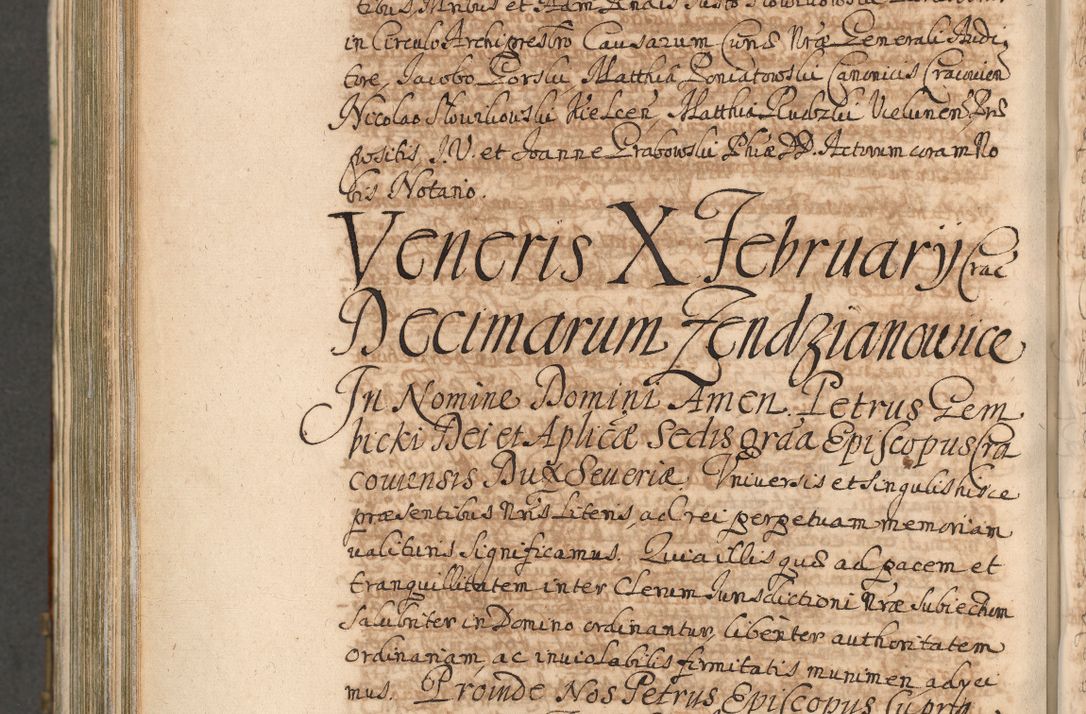 in Circulo Archipresbro Causarum Curiæ Nræ Generali Audi,
tore, Jacobo Gorski, Matthia Poniatowski Canonicis Cracovien
Nicolao Slowikowski Kielcen, Matthia Rudzki Vielunen, Præ
positis, J.V. et Joanne Grabowski Phiæ DD. Actorum coram No
bis Notario.
Veneris X February Crac
Decimarum Zendzianowice
In Nomine Domini Amen. Petrus Gem
bicki Dei et Aplicæ Sedis graa Episcopus Cra
coviensis Dux Severiæ, Universis et singulis hisce
præsentibus Nris Literis, ad rei perpetuam memoriam
valituris significamus. Quia illis quæ ad pacem et
tranquillitatem inter Clerum Jurisdictioni Nræ Subiectum
salubriter in Domino ordinantur, libenter authoritatem
ordinariam, ac inviolabilis firmitatis munimen adyci
mus. Proinde Nos Petrus Episcopus supra